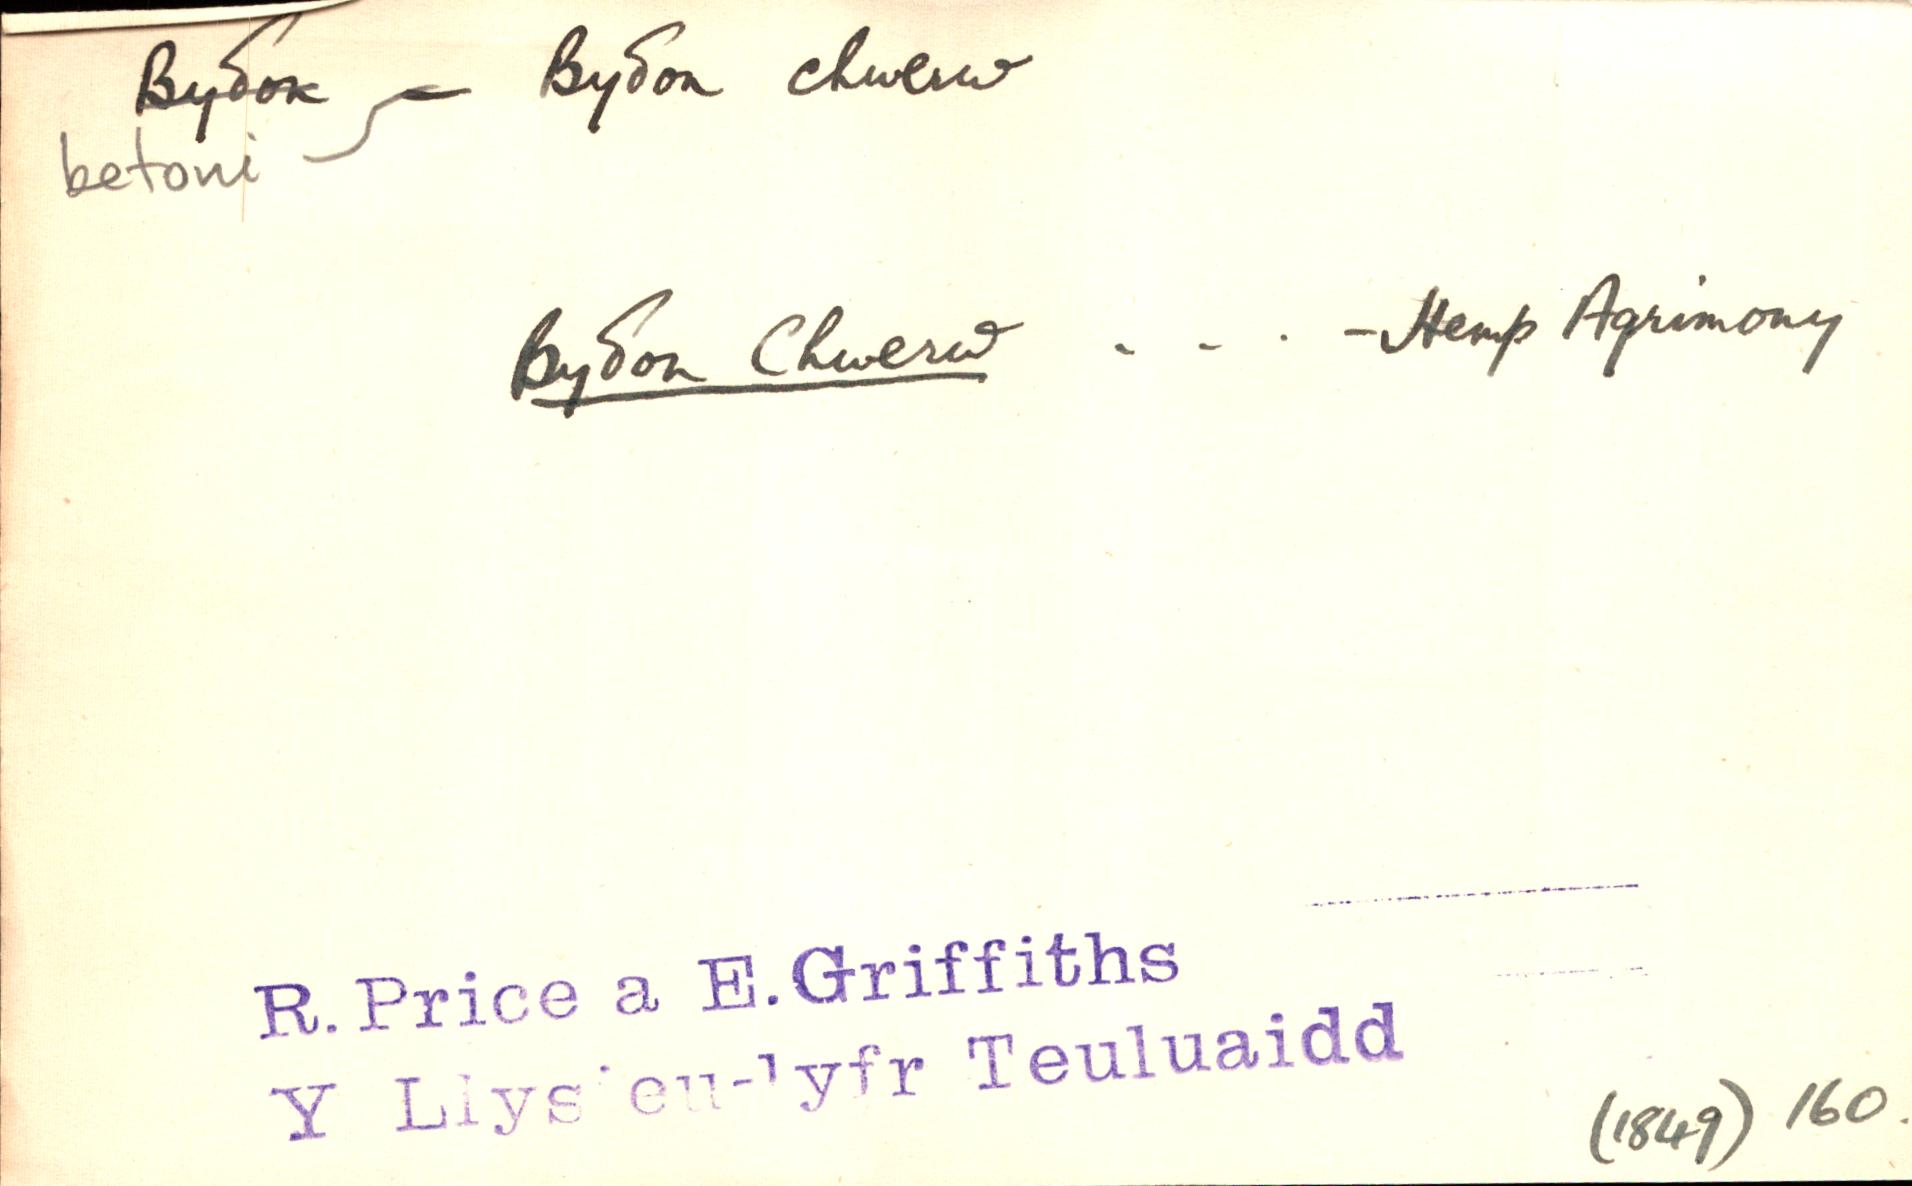 Byδon — Byδon chwerw
betoni
Byδon Chwerw . . . - Hemp Agrimony
R. Price a E. Griffiths
Y Llysieu-lyfr Teuluaidd
(1849) 160.